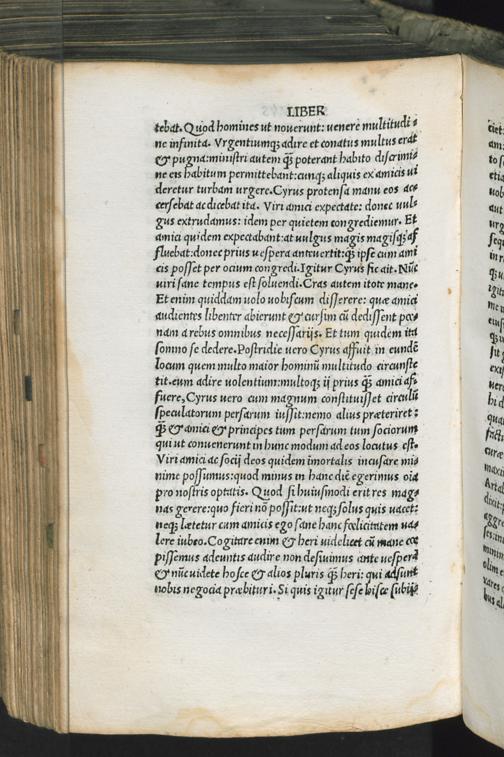 LIBER
tebat. Quod homines ut nouerunt: uenere multitudi⸗
ne infinita. Vrgentiumq; adire et conatus multus erat
& pugna: ministri autem q̃ poterant habito discrimi⸗
ne eis habitum permittebant: cumq; aliquis ex amicis ui
deretur turbam urgere. Cyrus protensa manu eos ac⸗
cersebat ac dicebat ita. Viri amici expectate: donec uul⸗
gus extrudamus: idem per quietem congrediemur. Et
amici quidem expectabant: at uulgus magis magisq; af
fluebat: donec prius uespera anteuertit: q̃ ipse cum ami
cis posset per ocium congredi. Igitur Cyrus sic ait. Nũc
uiri sane tempus est soluendi. Cras autem itote mane.
Et enim quiddam uolo uobiscum disserere: quæ amici
audientes libenter abierunt & cursim cũ dedissent pœ⸗
nam a rebus omnibus necessarijs. Et tum quidem ita
somno se dedere. Postridie uero Cyrus affuit in eundẽ
locum quem multo maior hominũ multitudo circunste
tit. eum adire uolentium: multoq; ij prius q̃ amici af⸗
fuere, Cyrus uero cum magnum constituisset circulũ
speculatorum persarum iussit: nemo alius præteriret:
q̃ & amici & principes tum persarum tum sociorum
qui ut conuenerunt in hunc modum ad eos locutus est.
Viri amici ac socij deos quidem imortalis incusare mi⸗
nime possumus: quod minus in hanc diẽ egerimus oia
pro nostris optatis. Quod si huiusmodi erit res mag⸗
nas gerere: quo fieri nõ possit: ut neq; solus quis uacet:
neq; lætetur cum amicis ego sane hanc fœlicitatem ua⸗
lere iubeo. Cogitare enim & heri uidelicet cũ mane cœ
pissemus adeuntis audire non desiuimus ante uesperã
& nũc uidete hosce & alios pluris q̃ heri: qui adsunt
nobis negocia præbituri. Si quis igitur sese hisce subij⸗